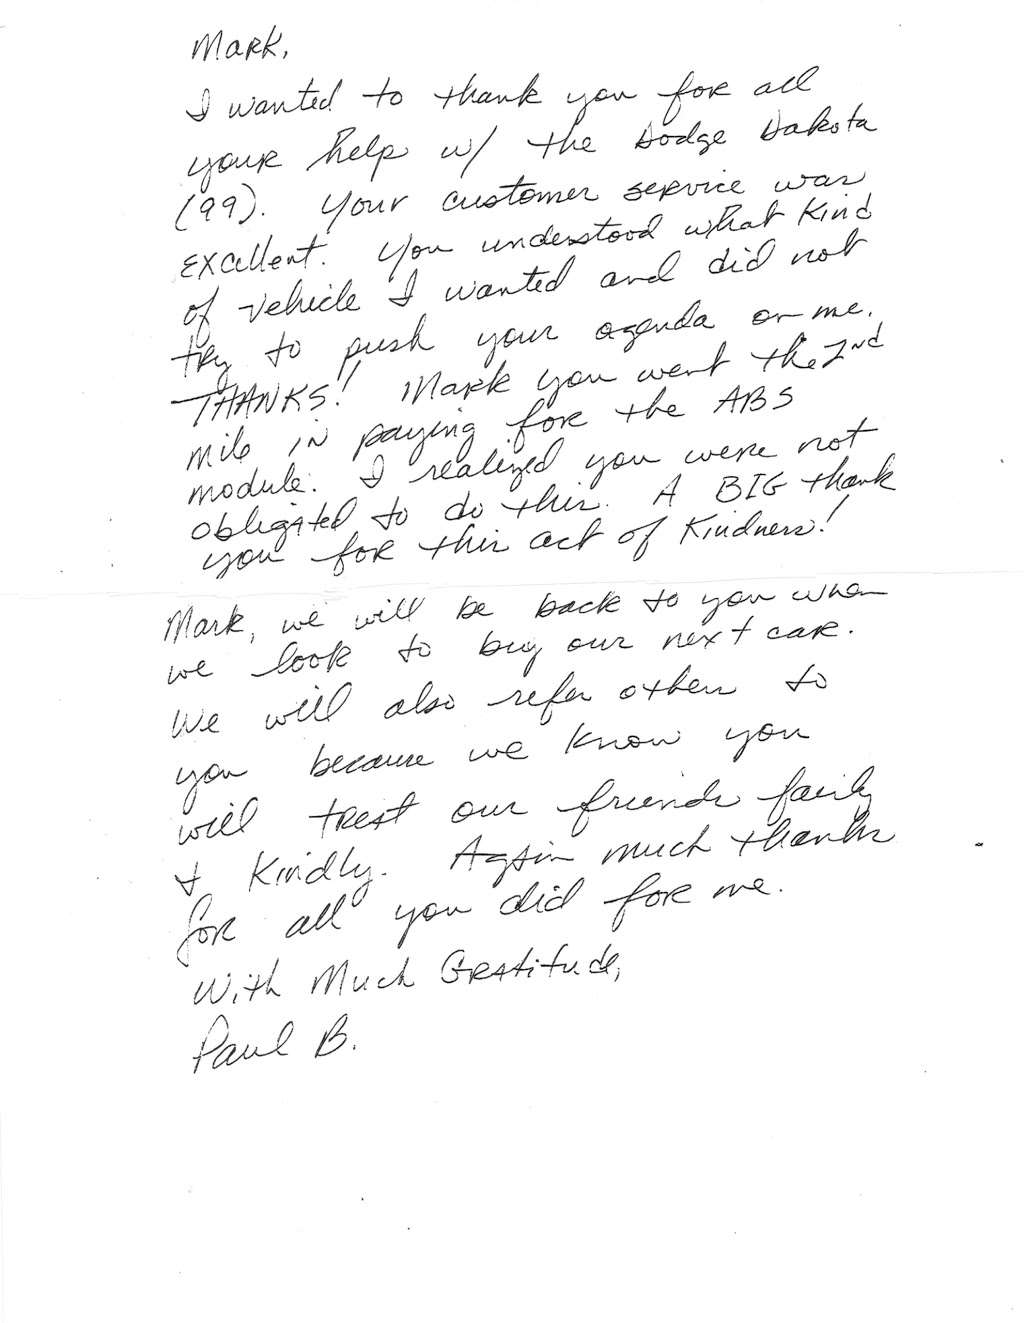 Mark,
I wanted to thank you for all
your help w/ the Dodge Dakota
(99). Your customer service was
excellent. You understood what kind
of vehicle I wanted and did not
try to push your agenda on me.
THANKS! Mark you went the 2nd
mile in paying for the ABS
module. I realized you were not
obligated to do this. A BIG thank
you for this act of kindness!
Mark, we will be back to you when
we look to buy our next car.
We will also refer others to
you because we know you
will treat our friends fairly
& kindly. Again much thanks
for all you did for me.
With Much Gratitude,
Paul B.